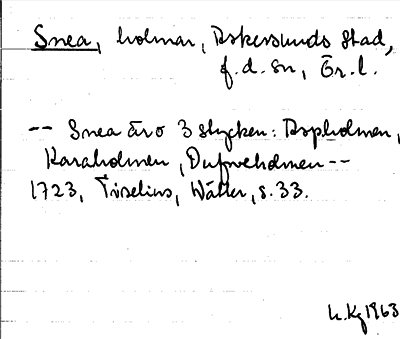 Snea, holmar, Askersunds stad,
f.d. sn, Ör. l.
-- Snea äro 3 stycken: Aspholmen,
Karaholmen, Dufweholmen --
1723, Tiselius, Wätter, s. 33.
h. Kg 1963